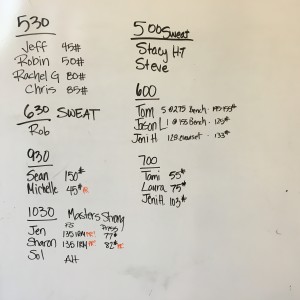 530
Jeff 45#
Robin 50#
Rachel G 80#
Chris 85#
630 SWEAT
Rob
930
Sean 150#
Michelle 45# PR
1030 Masters Strong
FS Press
Jen 135 1RM PR! 77#
Sharon 135 1RM PR! 82# PR
Sol AH
500 Sweat
Stacy H7
Steve
600
Tom 5 @ 275 Bench -
Jason L 1 @ 155 Bench - 125#
Jeni H 125 - 133#
700
Tami 55#
Laura 75#
Jeni H 103#